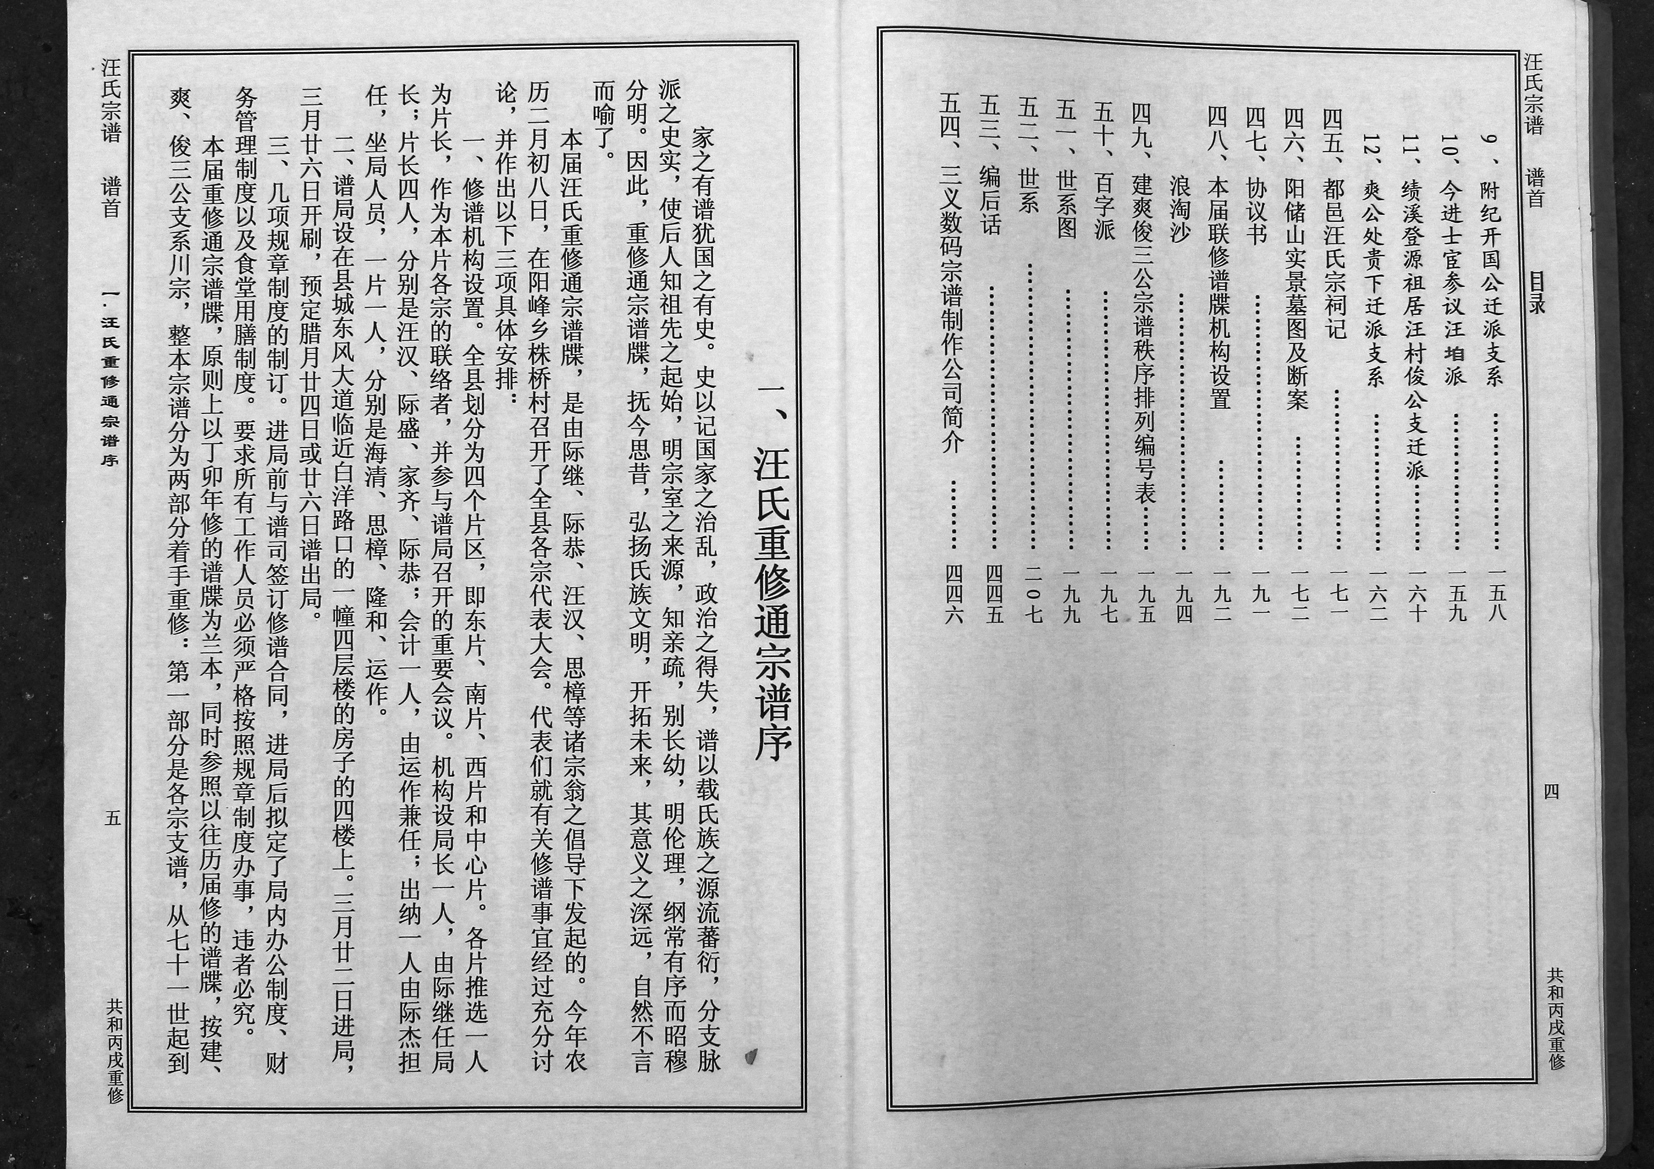 汪氏宗谱 谱首 目录 四 共和丙戌重修
9、附纪开国公迁派支系 一五八
10、今进士宦参议汪垍派 一五九
11、绩溪登源祖居汪村俊公支迁派 一六十
12、爽公处贵下迁派支系 一六二
四五、都邑汪氏宗祠记 一七一
四六、阳储山实景墓图及断案 一七二
四七、协议书 一九一
四八、本届联修谱牒机构设置 一九二
浪淘沙 一九四
四九、建爽俊三公宗谱秩序排列编号表 一九五
五十、百字派 一九七
五一、世系图 一九九
五二、世系 二0七
五三、编后话 四四五
五四、三义数码宗谱制作公司简介 四四六
一、汪氏重修通宗谱序
家之有谱犹国之有史。史以记国家之治乱，政治之得失，谱以载氏族之源流蕃衍，分支脉
派之史实，使后人知祖先之起始，明宗室之来源，知亲疏，别长幼，明伦理，纲常有序而昭穆
分明。因此，重修通宗谱牒，抚今思昔，弘扬氏族文明，开拓未来，其意义之深远，自然不言
而喻了。
本届汪氏重修通宗谱牒，是由际继、际恭、汪汉、思樟等诸宗翁之倡导下发起的。今年农
历二月初八日，在阳峰乡株桥村召开了全县各宗代表大会。代表们就有关修谱事宜经过充分讨
论，并作出以下三项具体安排：
一、修谱机构设置。全县划分为四个片区，即东片、南片、西片和中心片。各片推选一人
为片长，作为本片各宗的联络者，并参与谱局召开的重要会议。机构设局长一人，由际继任局
长；片长四人，分别是汪汉、际盛、家齐、际恭；会计一人，由运作兼任；出纳一人由际杰担
任，坐局人员，一片一人，分别是海清、思樟、隆和、运作。
二、谱局设在县城东风大道临近白洋路口的一幢四层楼的房子的四楼上。三月廿二日进局，
三月廿六日开刷，预定腊月廿四日或廿六日谱出局。
三、几项规章制度的制订。进局前与谱司签订修谱合同，进局后拟定了局内办公制度、财
务管理制度以及食堂用膳制度。要求所有工作人员必须严格按照规章制度办事，违者必究。
本届重修通宗谱牒，原则上以丁卯年修的谱牒为兰本，同时参照以往历届修的谱牒，按建、
爽、俊三公支系川宗，整本宗谱分为两部分着手重修：第一部分是各宗支谱，从七十一世起到
汪氏宗谱 谱首 一．汪氏重修通宗谱序 五 共和丙戌重修